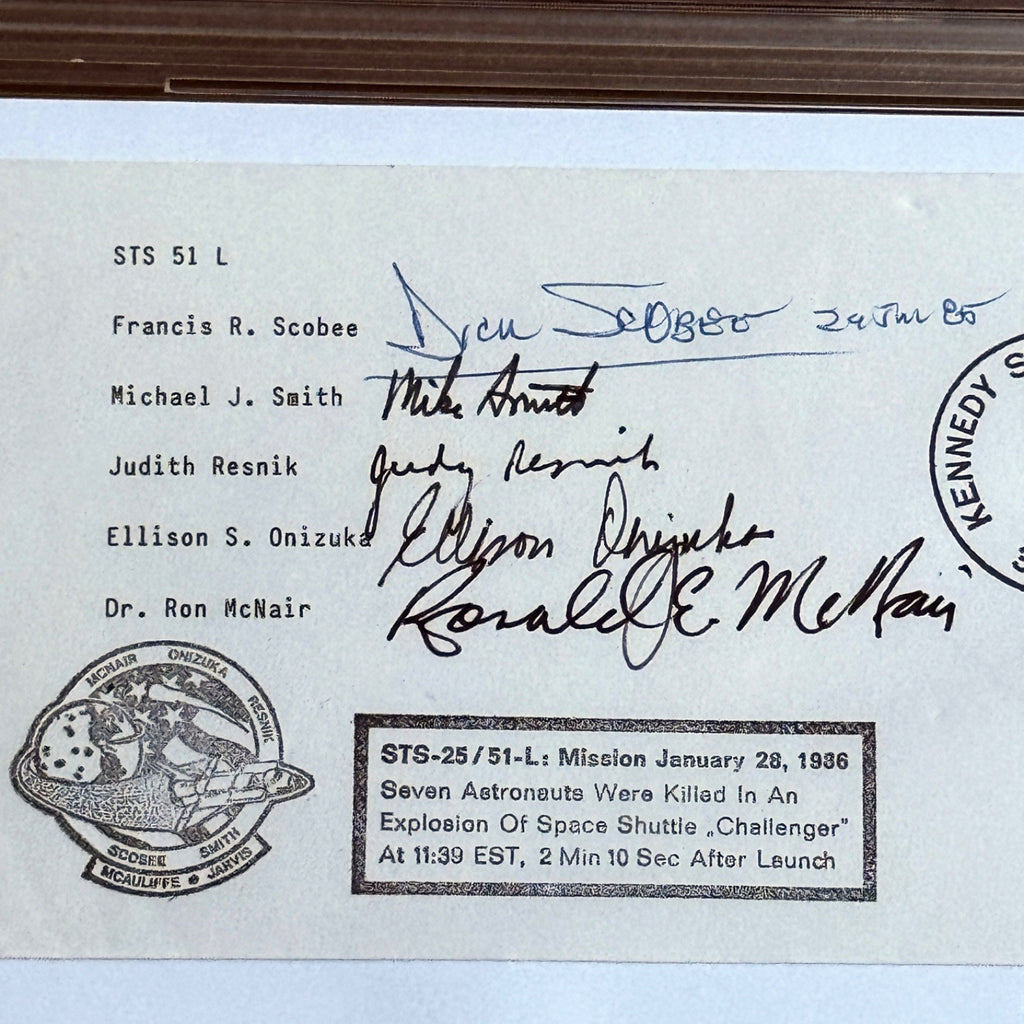 STS 51 L
Francis R. Scobee Dick Scobee
Michael J. Smith Mike Smith
Judith Resnik Judy Resnik
Ellison S. Onizuka Ellison Onizuka
Dr. Ron McNair Ronald E. McNair
KENNEDY S
MCNAIR ONIZUKA RESNIK
SCOBEE SMITH
MCAULIFFE JARVIS
STS-25/51-L: Mission January 28, 1986
Seven Astronauts Were Killed In An
Explosion Of Space Shuttle „Challenger”
At 11:39 EST, 2 Min 10 Sec After Launch